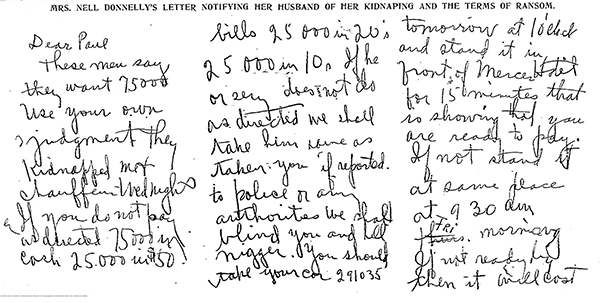 MRS. NELL DONNELLY'S LETTER NOTIFYING HER HUSBAND OF HER KIDNAPING AND THE TERMS OF RANSOM.
Dear Paul
These men say
they want 75000
Use your own
judgment They
kidnapped me +
chauffeur Wed night
If you do not pay
as directed 75000 in
cash 25.000 in $50.
bills 25000 in 20's
25.000 in 10s If he
or does not do
as directed we shall
take him same as
taken you if reported
to police or any
authorities we shall
blind you and kill
nigger. You should
take your car 291035
tomorrow at
and stand it in
front of
for 15 minutes that
is showing that you
are ready to pay.
If not stand it
at same place
at 9 30 am
Fri morning
If not ready by
then it will cost